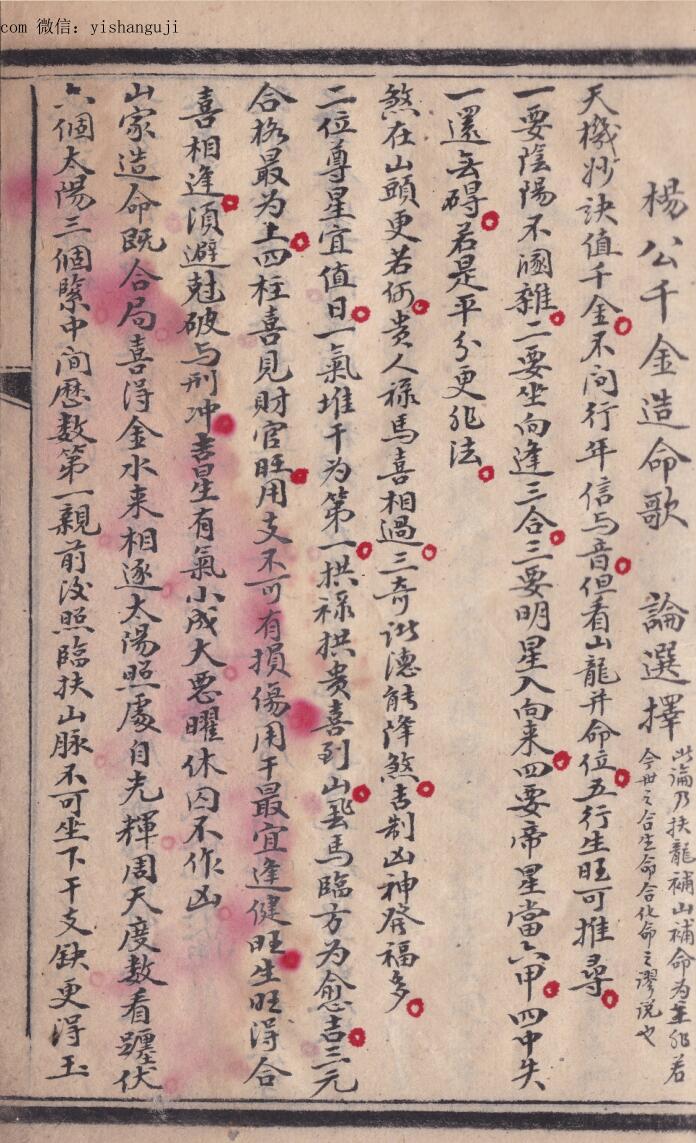 com 微信：yishanguji
楊公千金造命歌　論選擇
此論乃扶龍補山補命為主非若
今世之合生命合化命之謬说也
天機妙訣值千金不问行年信与音但看山龍并命位五行生旺可推尋
一要陰陽不溷雜二要坐向逢三合三要明星入向来四要帝星當六甲四中失
一還無碍若是平分更非法
煞在山頭更若何贵人禄馬喜相過三奇诸德能降煞吉制凶神發福多
二位尊星宜值日一氣堆干为第一拱禄拱贵喜到山飛馬臨方为愈吉三元
合格最为上四柱喜見財官旺用支不可有損傷用干最宜逢健旺生旺得合
喜相逢須避尅破与刑冲吉星有氣小成大恶曜休囚不作凶
山家造命既合局喜得金水来相逐太陽照處自光輝周天度数看躔伏
六個太陽三個緊中间歷数第一親前後照臨扶山脉不可坐下干支缺更得玉